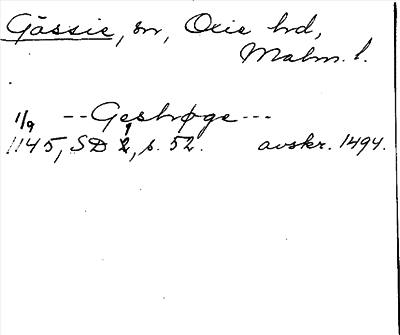 Gässie, sn, Oxie hd,
Malm. l.
1/9 -- Geshøge ---
1145, SD 2, s. 52. avskr. 1494.